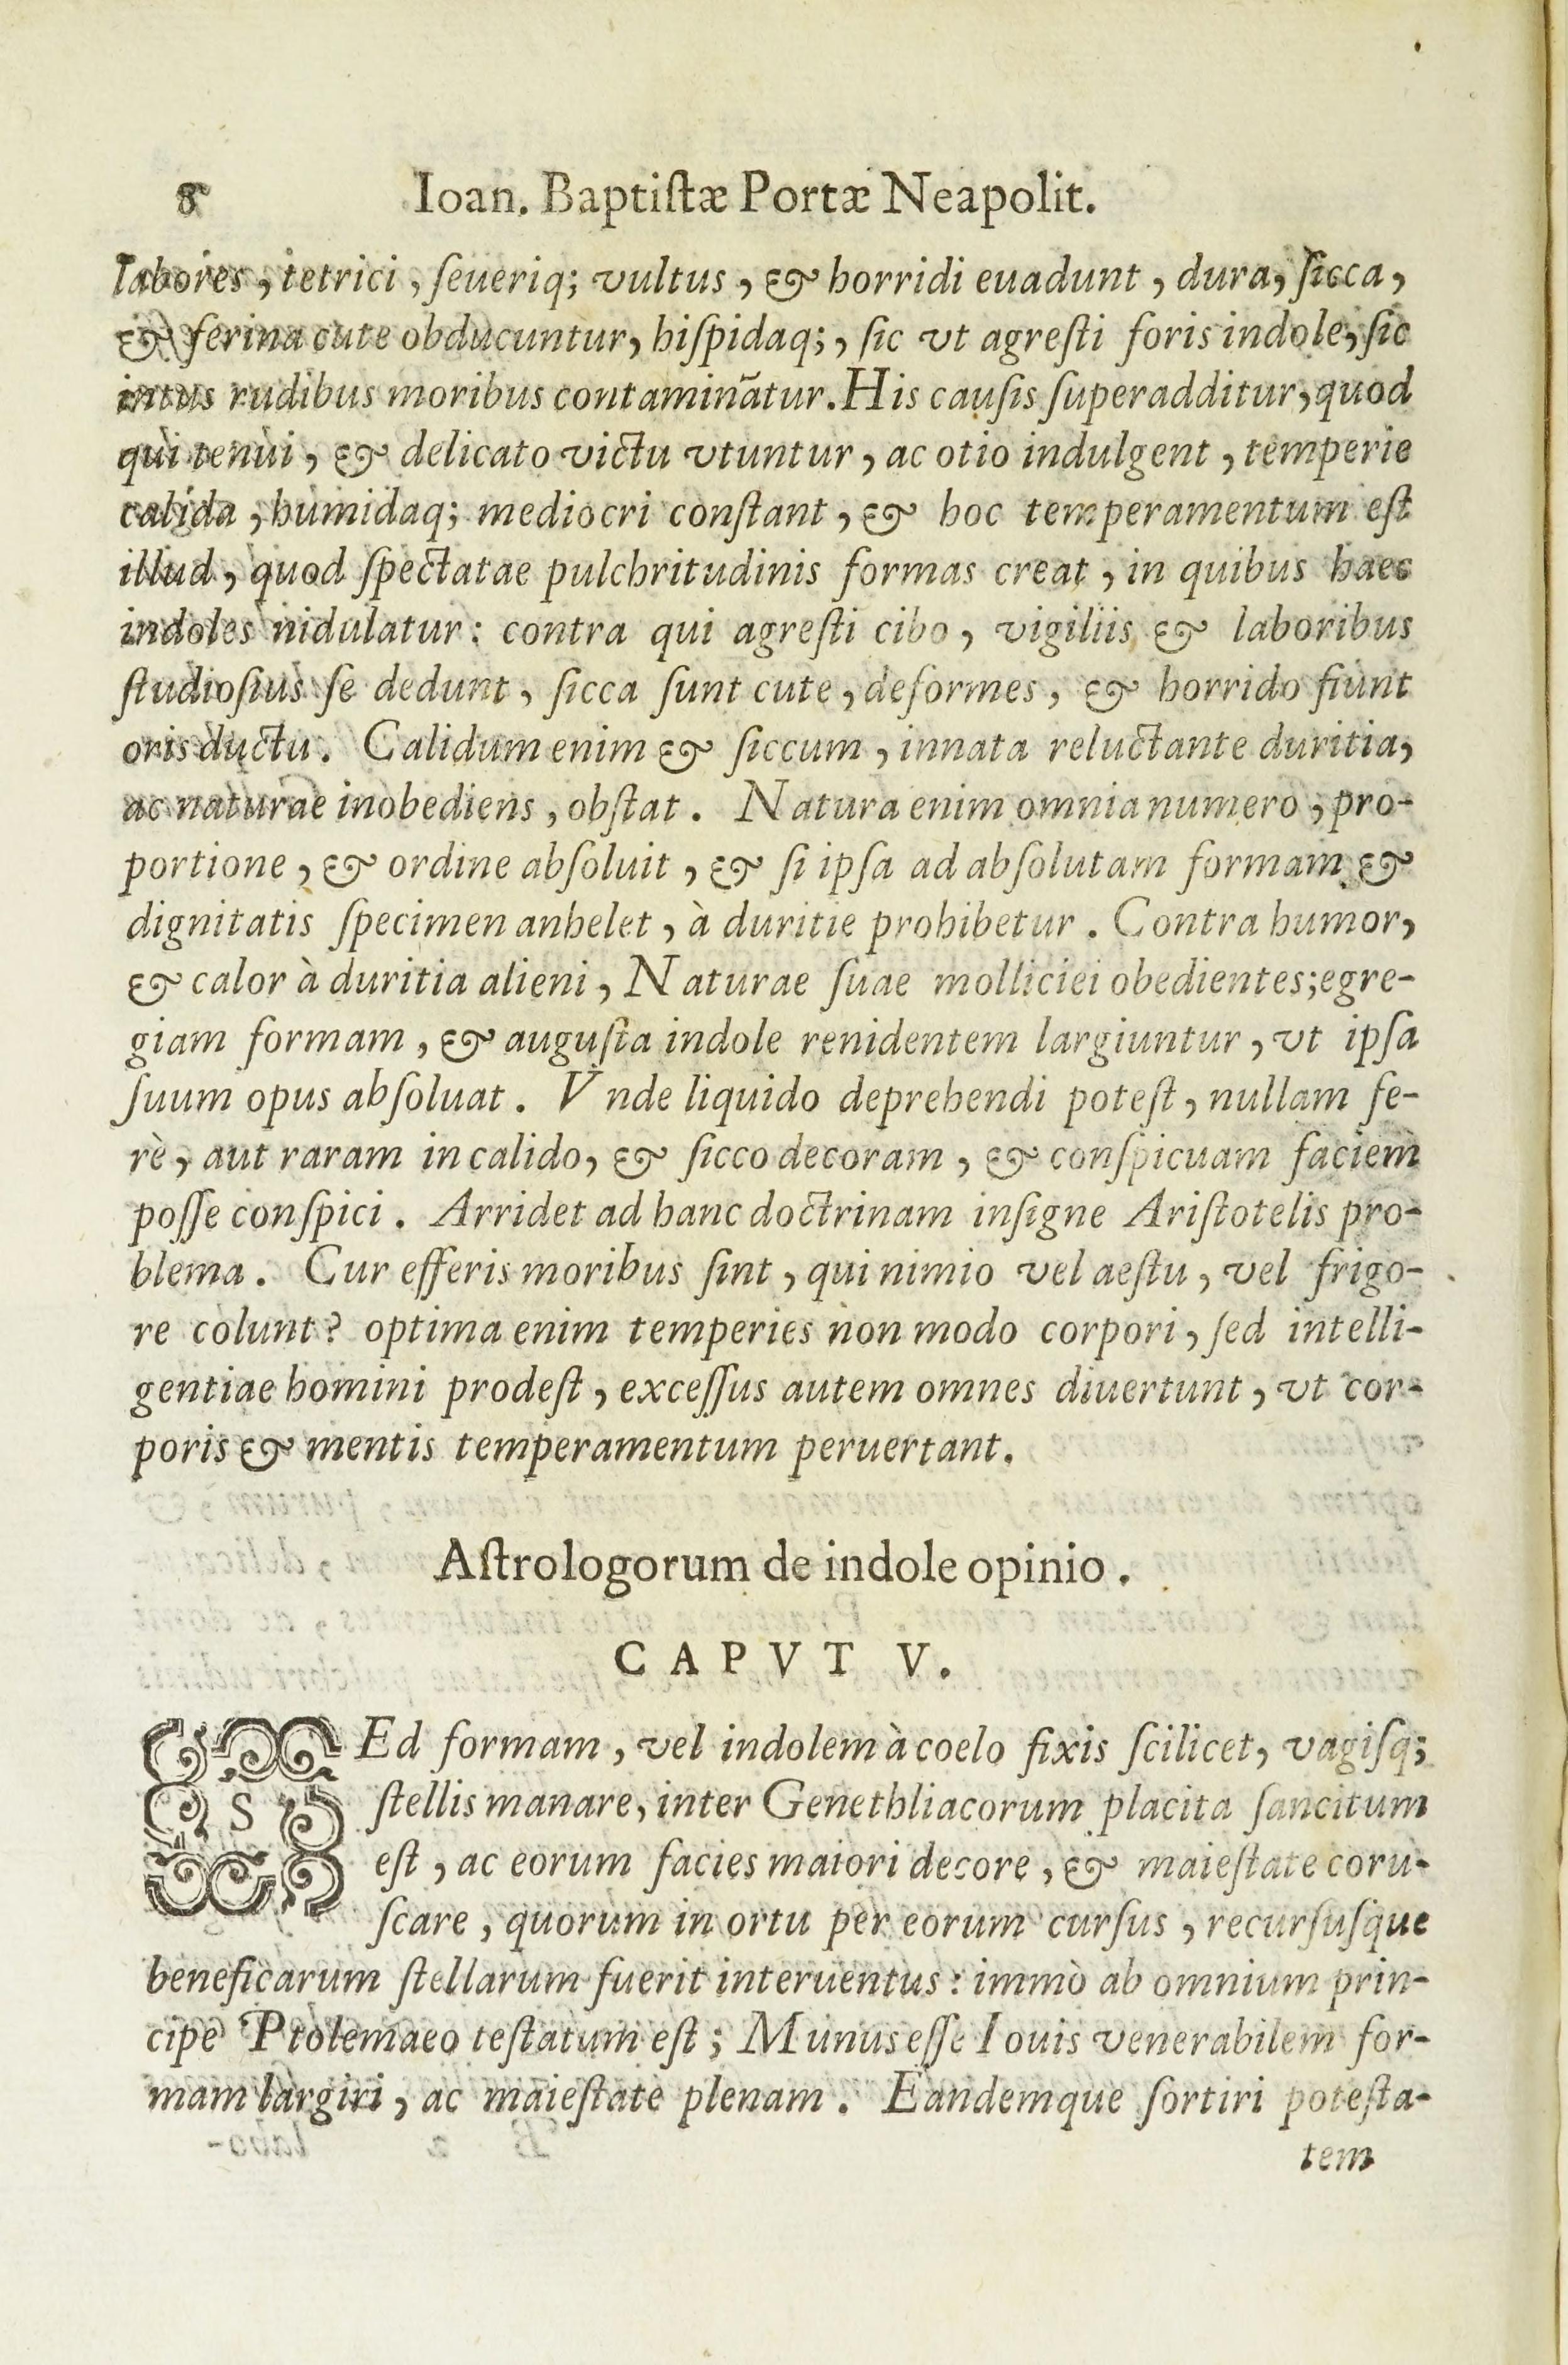 8 Ioan. Baptiſtæ Portæ Neapolit.
labores, tetrici, ſeueriq; vultus, & horridi euadunt, dura, ſicca,
& ferina cute obducuntur, hiſpidaq;, ſic vt agreſti foris indole, ſic
intus rudibus moribus contaminãtur. His cauſis ſuperadditur, quod
qùi tenùi, & delicato victu vtuntur, ac otio indulgent, temperie
calida, humidaq; mediocri conſtant, & hoc temperamentum eſt
illud, quod ſpectatae pulchritudinis formas creat, in quibus haec
indoles nidulatur: contra qui agreſti cibo, vigiliis & laboribus
ſtudioſius ſe dedunt, ſicca ſunt cute, deformes, & horrido fiunt
oris ductu. Calidum enim & ſiccum, innata reluctante duritia,
ac naturae inobediens, obſtat. Natura enim omnia numero, pro-
portione, & ordine abſoluit, & ſi ipſa ad abſolutam formam &
dignitatis ſpecimen anhelet, à duritie prohibetur. Contra humor,
& calor à duritia alieni, Naturae ſuae molliciei obedientes; egre-
giam formam, & auguſta indole renidentem largiuntur, vt ipſa
ſuum opus abſoluat. Vnde liquido deprehendi poteſt, nullam fe-
rè, aut raram in calido, & ſicco decoram, & conſpicuam faciem
poſſe conſpici. Arridet ad hanc doctrinam inſigne Ariſtotelis pro-
blema. Cur efferis moribus ſint, qui nimio vel aeſtu, vel frigo-
re colunt? optima enim temperies non modo corpori, ſed intelli-
gentiae homini prodeſt, exceſſus autem omnes diuertunt, vt cor-
poris & mentis temperamentum peruertant.
Aſtrologorum de indole opinio.
CAPVT V.
SEd formam, vel indolem à coelo fixis ſcilicet, vagiſq;
ſtellis manare, inter Genethliacorum placita ſancitum
eſt, ac eorum facies maiori decore, & maieſtate coru-
ſcare, quorum in ortu per eorum curſus, recurſuſque
beneficarum ſtellarum fuerit interuentus: immò ab omnium prin-
cipe Ptolemaeo teſtatum eſt; Munus eſſe Iouis venerabilem for-
mam largiri, ac maieſtate plenam. Eandemque ſortiri poteſta-
tem